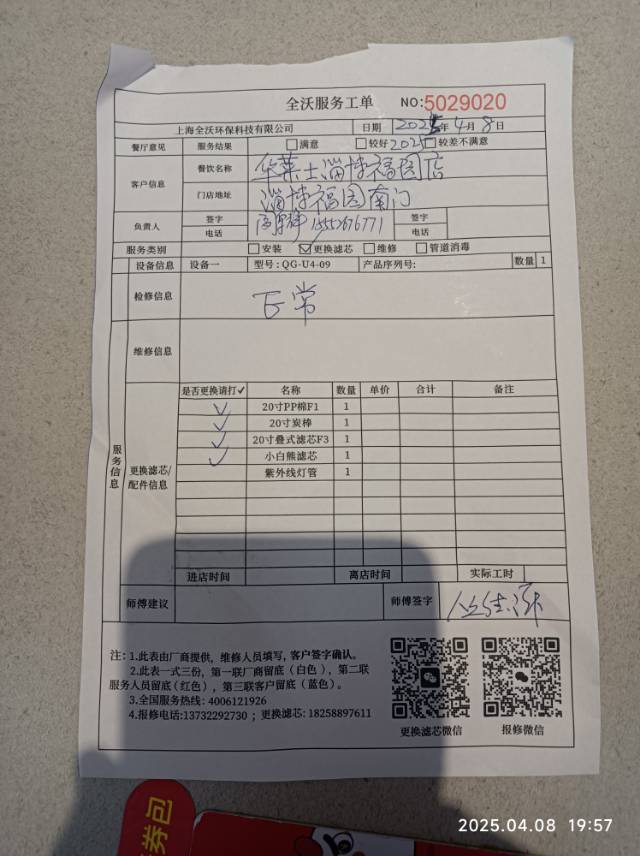 全沃服务工单 NO:5029020
上海全沃环保科技有限公司 日期 2025年4月8日
餐厅意见 服务结果 □满意 □较好 2025 □较差不满意
客户信息 餐饮名称 华莱士淄博福园店
门店地址 淄博福园南门
负责人 签字 签字
电话 电话
服务类别 □安装 ☑更换滤芯 □维修 □管道消毒
设备信息 设备一 型号:QG-U4-09 产品序列号: 数量 1
检修信息 正常
维修信息
服务信息
更换滤芯/配件信息
是否更换请打✓ 名称 数量 单价 合计 备注
✓ 20寸PP棉F1 1
✓ 20寸炭棒 1
✓ 20寸叠式滤芯F3 1
✓ 小白熊滤芯 1
紫外线灯管 1
进店时间 离店时间 实际工时
师傅建议 师傅签字
注:1.此表由厂商提供,维修人员填写,客户签字确认。
2.此表一式三份,第一联厂商留底(白色)、第二联
服务人员留底(红色)、第三联客户留底(蓝色)。
3.全国服务热线:4006121926
4.报修电话:13732292730;更换滤芯:18258897611
更换滤芯微信 报修微信
券包
2025.04.08 19:57